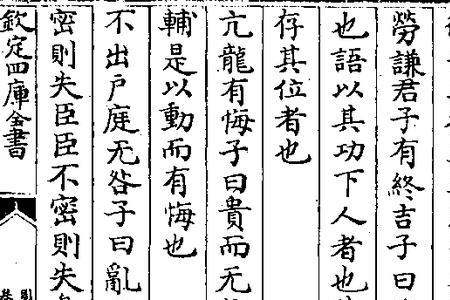 勞謙君子有終吉子曰
也語以其功下人者也
存其位者也
亢龍有悔子曰貴而无
輔是以動而有悔也
不出戶庭无咎子曰亂
密則失臣臣不密則失
欽定四庫全書